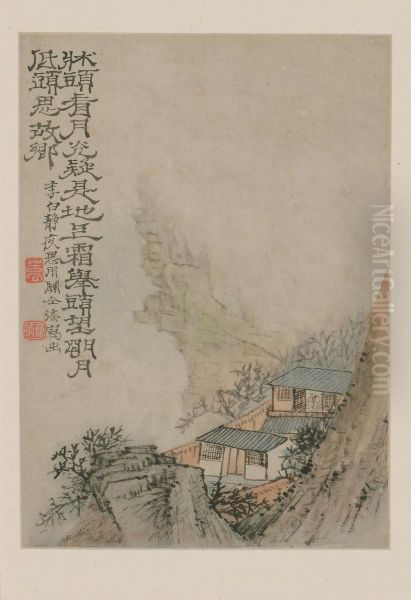 牀頭看月光疑是地上霜舉頭望明月
低頭思故鄉
李白靜夜思用關仝法寫
NiceArtGallery.com
NiceArtGallery.com